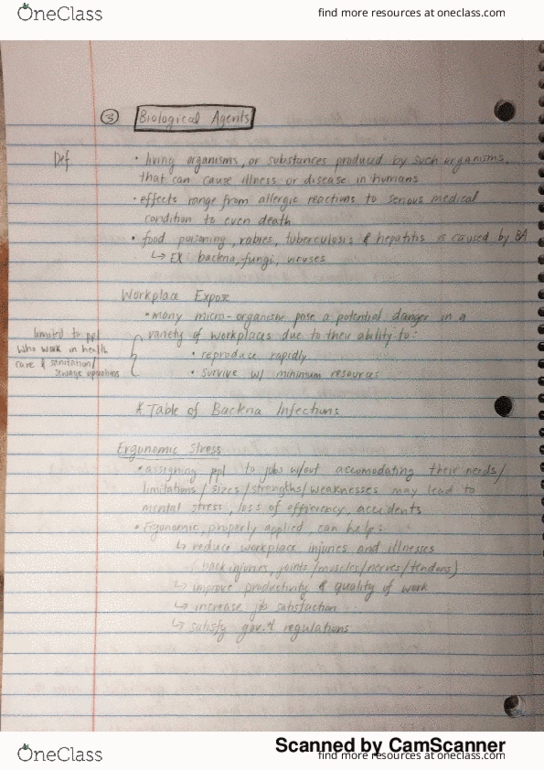 OneClass
find more resources at oneclass.com
③ Biological Agents
Def
• living organisms, or substances produced by such organisms,
that can cause illness or disease in humans
• effects range from allergic reactions to serious medical
condition to even death
• food poisoning, rabies, tuberculosis & hepatitis is caused by BA
↳ EX: bacteria, fungi, viruses
Workplace Expose
• many micro-organism pose a potential danger in a
variety of workplaces due to their ability to:
limited to ppl
who work in health
care & sanitation/
sewage operations
• reproduce rapidly
• survive w/ minimum resources
* Table of Bacteria Infections
Ergonomic Stress
• assigning ppl to jobs w/out accomodating their needs/
limitations/sizes/strengths/weaknesses may lead to
mental stress, loss of efficiency, accidents
• Ergonomic, properly applied, can help:
↳ reduce workplace injuries and illnesses
(back injuries, joints/muscles/nerves/tendons)
↳ improve productivity & quality of work
↳ increase job satisfaction
↳ satisfy gov.t regulations
Scanned by CamScanner
OneClass
find more resources at oneclass.com